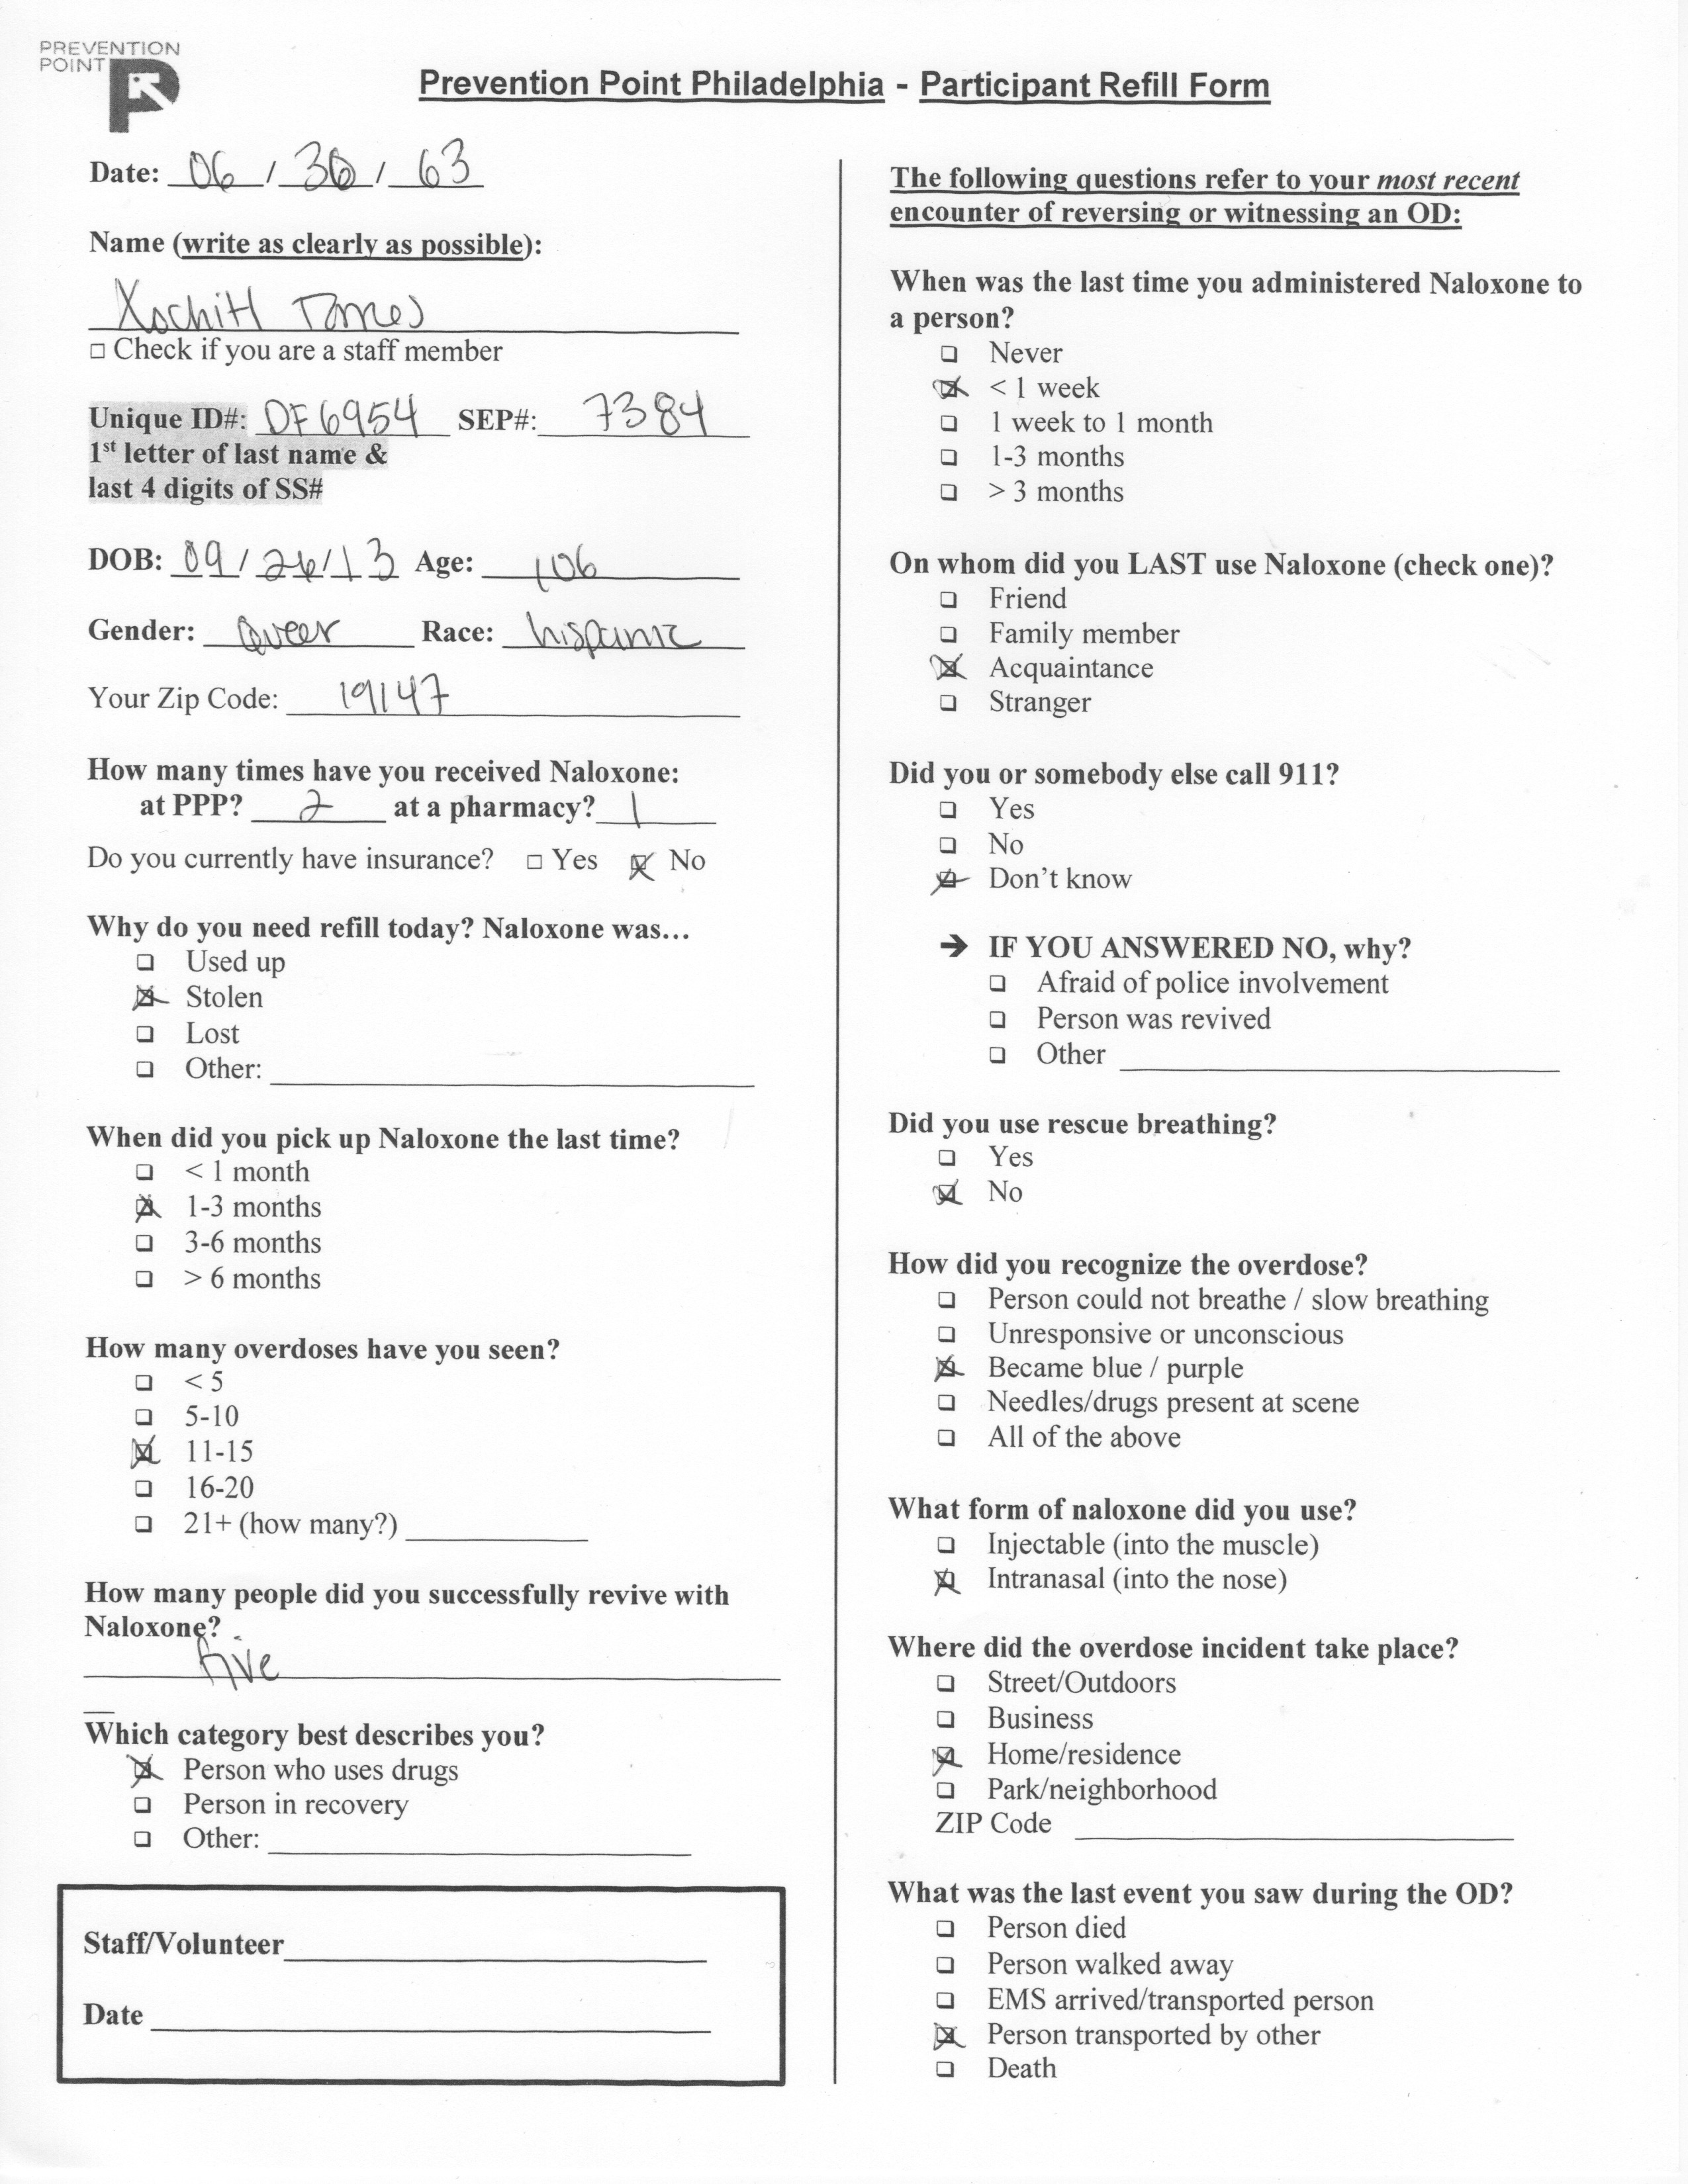 PREVENTION
POINT
Prevention Point Philadelphia - Participant Refill Form
Date: 06 / 30 / 63
Name (write as clearly as possible):
Xochitl Torres
□ Check if you are a staff member
Unique ID#: DF6954 SEP#: 7384
1st letter of last name &
last 4 digits of SS#
DOB: 09/26/13 Age: 106
Gender: Queer Race: hispanic
Your Zip Code: 19147
How many times have you received Naloxone:
at PPP? 2 at a pharmacy? 1
Do you currently have insurance? □ Yes ☒ No
Why do you need refill today? Naloxone was...
❑ Used up
☒ Stolen
❑ Lost
❑ Other:
When did you pick up Naloxone the last time?
❑ < 1 month
☒ 1-3 months
❑ 3-6 months
❑ > 6 months
How many overdoses have you seen?
❑ < 5
❑ 5-10
☒ 11-15
❑ 16-20
❑ 21+ (how many?)
How many people did you successfully revive with
Naloxone?
five
Which category best describes you?
☒ Person who uses drugs
❑ Person in recovery
❑ Other:
Staff/Volunteer
Date
The following questions refer to your most recent
encounter of reversing or witnessing an OD:
When was the last time you administered Naloxone to
a person?
❑ Never
☒ < 1 week
❑ 1 week to 1 month
❑ 1-3 months
❑ > 3 months
On whom did you LAST use Naloxone (check one)?
❑ Friend
❑ Family member
☒ Acquaintance
❑ Stranger
Did you or somebody else call 911?
❑ Yes
❑ No
☒ Don't know
➔ IF YOU ANSWERED NO, why?
❑ Afraid of police involvement
❑ Person was revived
❑ Other
Did you use rescue breathing?
❑ Yes
☒ No
How did you recognize the overdose?
❑ Person could not breathe / slow breathing
❑ Unresponsive or unconscious
☒ Became blue / purple
❑ Needles/drugs present at scene
❑ All of the above
What form of naloxone did you use?
❑ Injectable (into the muscle)
☒ Intranasal (into the nose)
Where did the overdose incident take place?
❑ Street/Outdoors
❑ Business
☒ Home/residence
❑ Park/neighborhood
ZIP Code
What was the last event you saw during the OD?
❑ Person died
❑ Person walked away
❑ EMS arrived/transported person
☒ Person transported by other
❑ Death